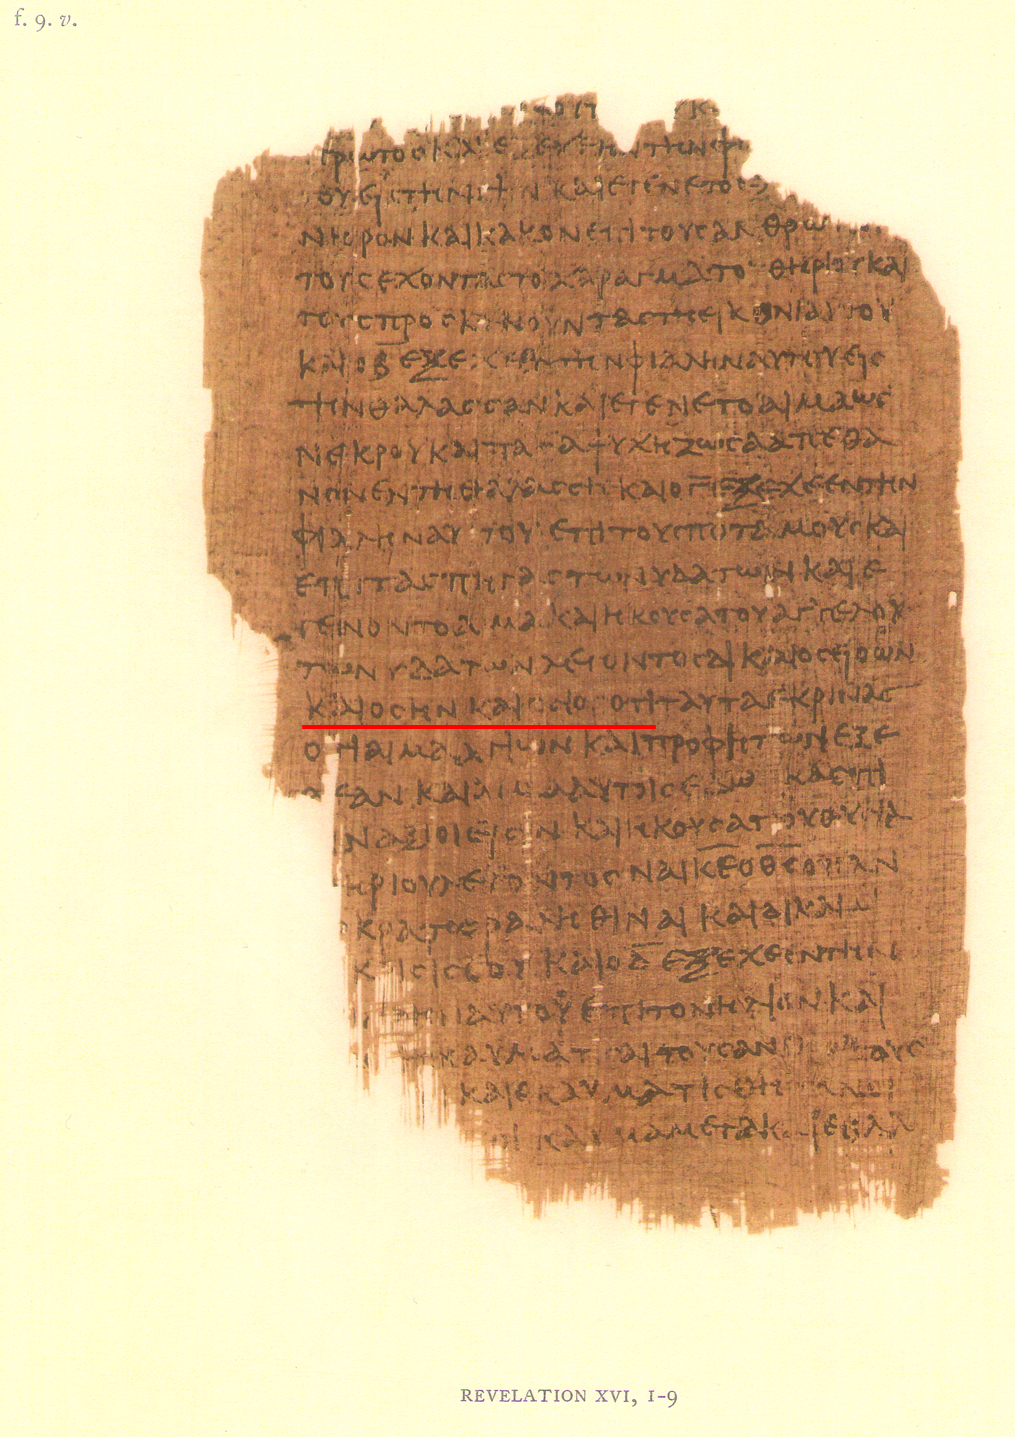 f. 9. v.
ΤΟΥ ΕΙΣ ΤΗΝ ΓΗΝ ΚΑΙ ΕΓΕΝΕΤΟ ΕΛ
ΝΗΡΟΝ ΚΑΙ ΚΑΚΟΝ ΕΠΙ ΤΟΥΣ ΑΝΘΡΩ
ΤΟΥΣ ΕΧΟΝΤΑΣ ΤΟ ΧΑΡΑΓΜΑ ΤΟΥ ΘΗΡΙΟΥ ΚΑΙ
ΤΟΥΣ ΠΡΟΣΚΥΝΟΥΝΤΑΣ ΤΗ ΕΙΚΟΝΙ ΑΥΤΟΥ
ΚΑΙ Ο Β̅ ΕΞΕΧΕΕΝ ΤΗΝ ΦΙΑΛΗΝ ΑΥΤΟΥ ΕΙΣ
ΤΗΝ ΘΑΛΑΣΣΑΝ ΚΑΙ ΕΓΕΝΕΤΟ ΑΙΜΑ ΩΣ
ΝΕΚΡΟΥ ΚΑΙ ΠΑΣΑ ΨΥΧΗ ΖΩΣΑ ΑΠΕΘΑ
ΝΟΝ ΕΝ ΤΗ ΘΑΛΑΣΣΗ ΚΑΙ Ο Γ̅ ΕΞΕΧΕΕΝ ΤΗΝ
ΦΙΑΛΗΝ ΑΥΤΟΥ ΕΠΙ ΤΟΥΣ ΠΟΤΑΜΟΥΣ ΚΑΙ
ΕΠΙ ΤΑΣ ΠΗΓΑΣ ΤΩΝ ΥΔΑΤΩΝ ΚΑΙ Ε
ΓΕΝΟΝΤΟ ΑΙΜΑ ΚΑΙ ΗΚΟΥΣΑ ΤΟΥ ΑΓΓΕΛΟΥ
ΤΩΝ ΥΔΑΤΩΝ ΛΕΓΟΝΤΟΣ ΔΙΚΑΙΟΣ ΕΙ Ο ΩΝ
ΚΑΙ ΟΣ ΗΝ ΚΑΙ ΟΣΙΟΣ ΟΤΙ ΤΑΥΤΑ ΕΚΡΙΝΑΣ
ΟΤΙ ΑΙΜΑ ΑΓΙΩΝ ΚΑΙ ΠΡΟΦΗΤΩΝ ΕΞΕ
ΧΕΑΝ ΚΑΙ ΑΙΜΑ ΑΥΤΟΙΣ ΕΔΩΚΑΣ ΠΙ
ΕΙΝ ΑΞΙΟΙ ΕΙΣΙΝ ΚΑΙ ΗΚΟΥΣΑ ΤΟΥ ΘΥΣΙΑ
ΣΤΗΡΙΟΥ ΛΕΓΟΝΤΟΣ ΝΑΙ Κ̅Ε̅ Ο Θ̅Ε̅Ο ΠΑΝ
ΤΟΚΡΑΤΩΡ ΑΛΗΘΙΝΑΙ ΚΑΙ ΔΙΚΑΙΑΙ
ΚΡΙΣΙΣ ΣΟΥ ΚΑΙ Ο Δ̅ ΕΞΕΧΕΕΝ ΤΗΝ
ΑΥΤΟΥ ΕΠΙ ΤΟΝ ΗΛΙΟΝ ΚΑΙ
ΚΑΥΜΑΤΙΣΑΙ ΤΟΥΣ ΑΝ
ΚΑΙ ΕΚΑΥΜΑΤΙΣΘΗ
ΚΑΥΜΑ ΜΕΓΑ Κ ΕΒΛΑ
REVELATION XVI, 1-9